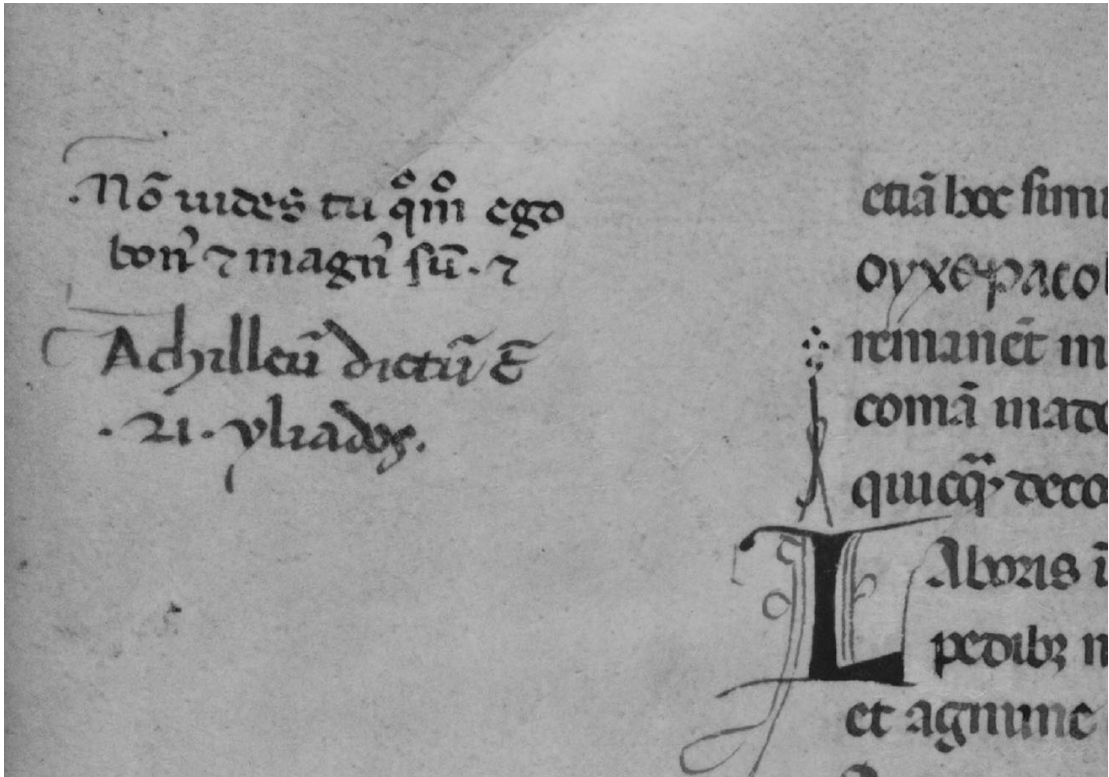 .Nō uides tu qͦmͦ ego
bonꝰ ⁊ magnꝰ sū. ⁊
Achilleū dictū ē
.21. yliados.
etiā hoc simi
ουχεραcοι
remanēt m
comā made
quicqᷓ deco
Laboris i
pedibꝫ n
et agmine